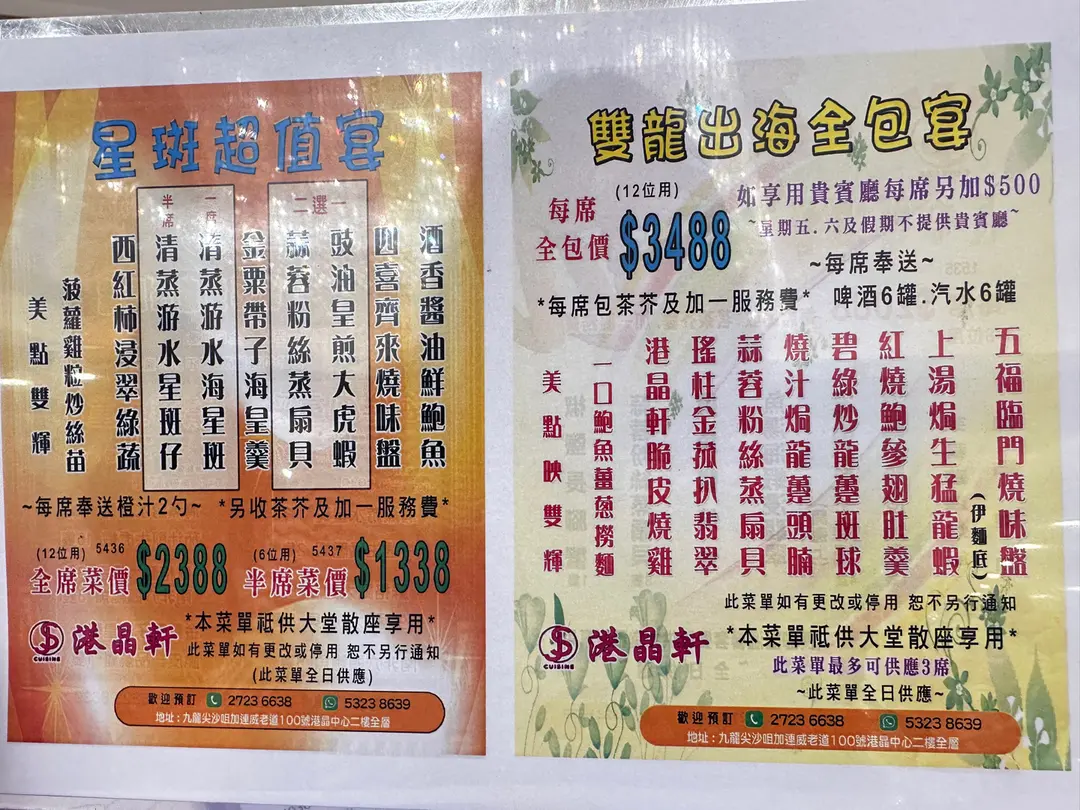 星斑超值宴
酒香醬油鮮鮑魚
四喜齊來燒味盤
二選一
豉油皇煎大虎蝦
蒜蓉粉絲蒸扇貝
金粟帶子海皇羹
一席
清蒸游水海星斑
半席
清蒸游水星斑仔
西紅柿浸翠綠蔬
菠蘿雞粒炒絲苗
美點雙輝
~每席奉送橙汁2勺~ *另收茶芥及加一服務費*
(12位用) 5436
全席菜價$2388
(6位用) 5437
半席菜價$1338
CUISINE
港晶軒
*本菜單祗供大堂散座享用*
此菜單如有更改或停用 恕不另行通知
(此菜單全日供應)
歡迎預訂 2723 6638 5323 8639
地址:九龍尖沙咀加連威老道100號港晶中心二樓全層
雙龍出海全包宴
每席
全包價
(12位用)
$3488
如享用貴賓廳每席另加$500
~星期五.六及假期不提供貴賓廳~
~每席奉送~
*每席包茶芥及加一服務費* 啤酒6罐.汽水6罐
五福臨門燒味盤
上湯焗生猛龍蝦
(伊麵底)
紅燒鮑參翅肚羹
碧綠炒龍躉斑球
燒汁焗龍躉頭腩
蒜蓉粉絲蒸扇貝
瑤柱金菰扒翡翠
港晶軒脆皮燒雞
一口鮑魚薑蔥撈麵
美點映雙輝
此菜單如有更改或停用 恕不另行通知
CUISINE
港晶軒
*本菜單祗供大堂散座享用*
此菜單最多可供應3席
~此菜單全日供應~
歡迎預訂 2723 6638 5323 8639
地址:九龍尖沙咀加連威老道100號港晶中心二樓全層